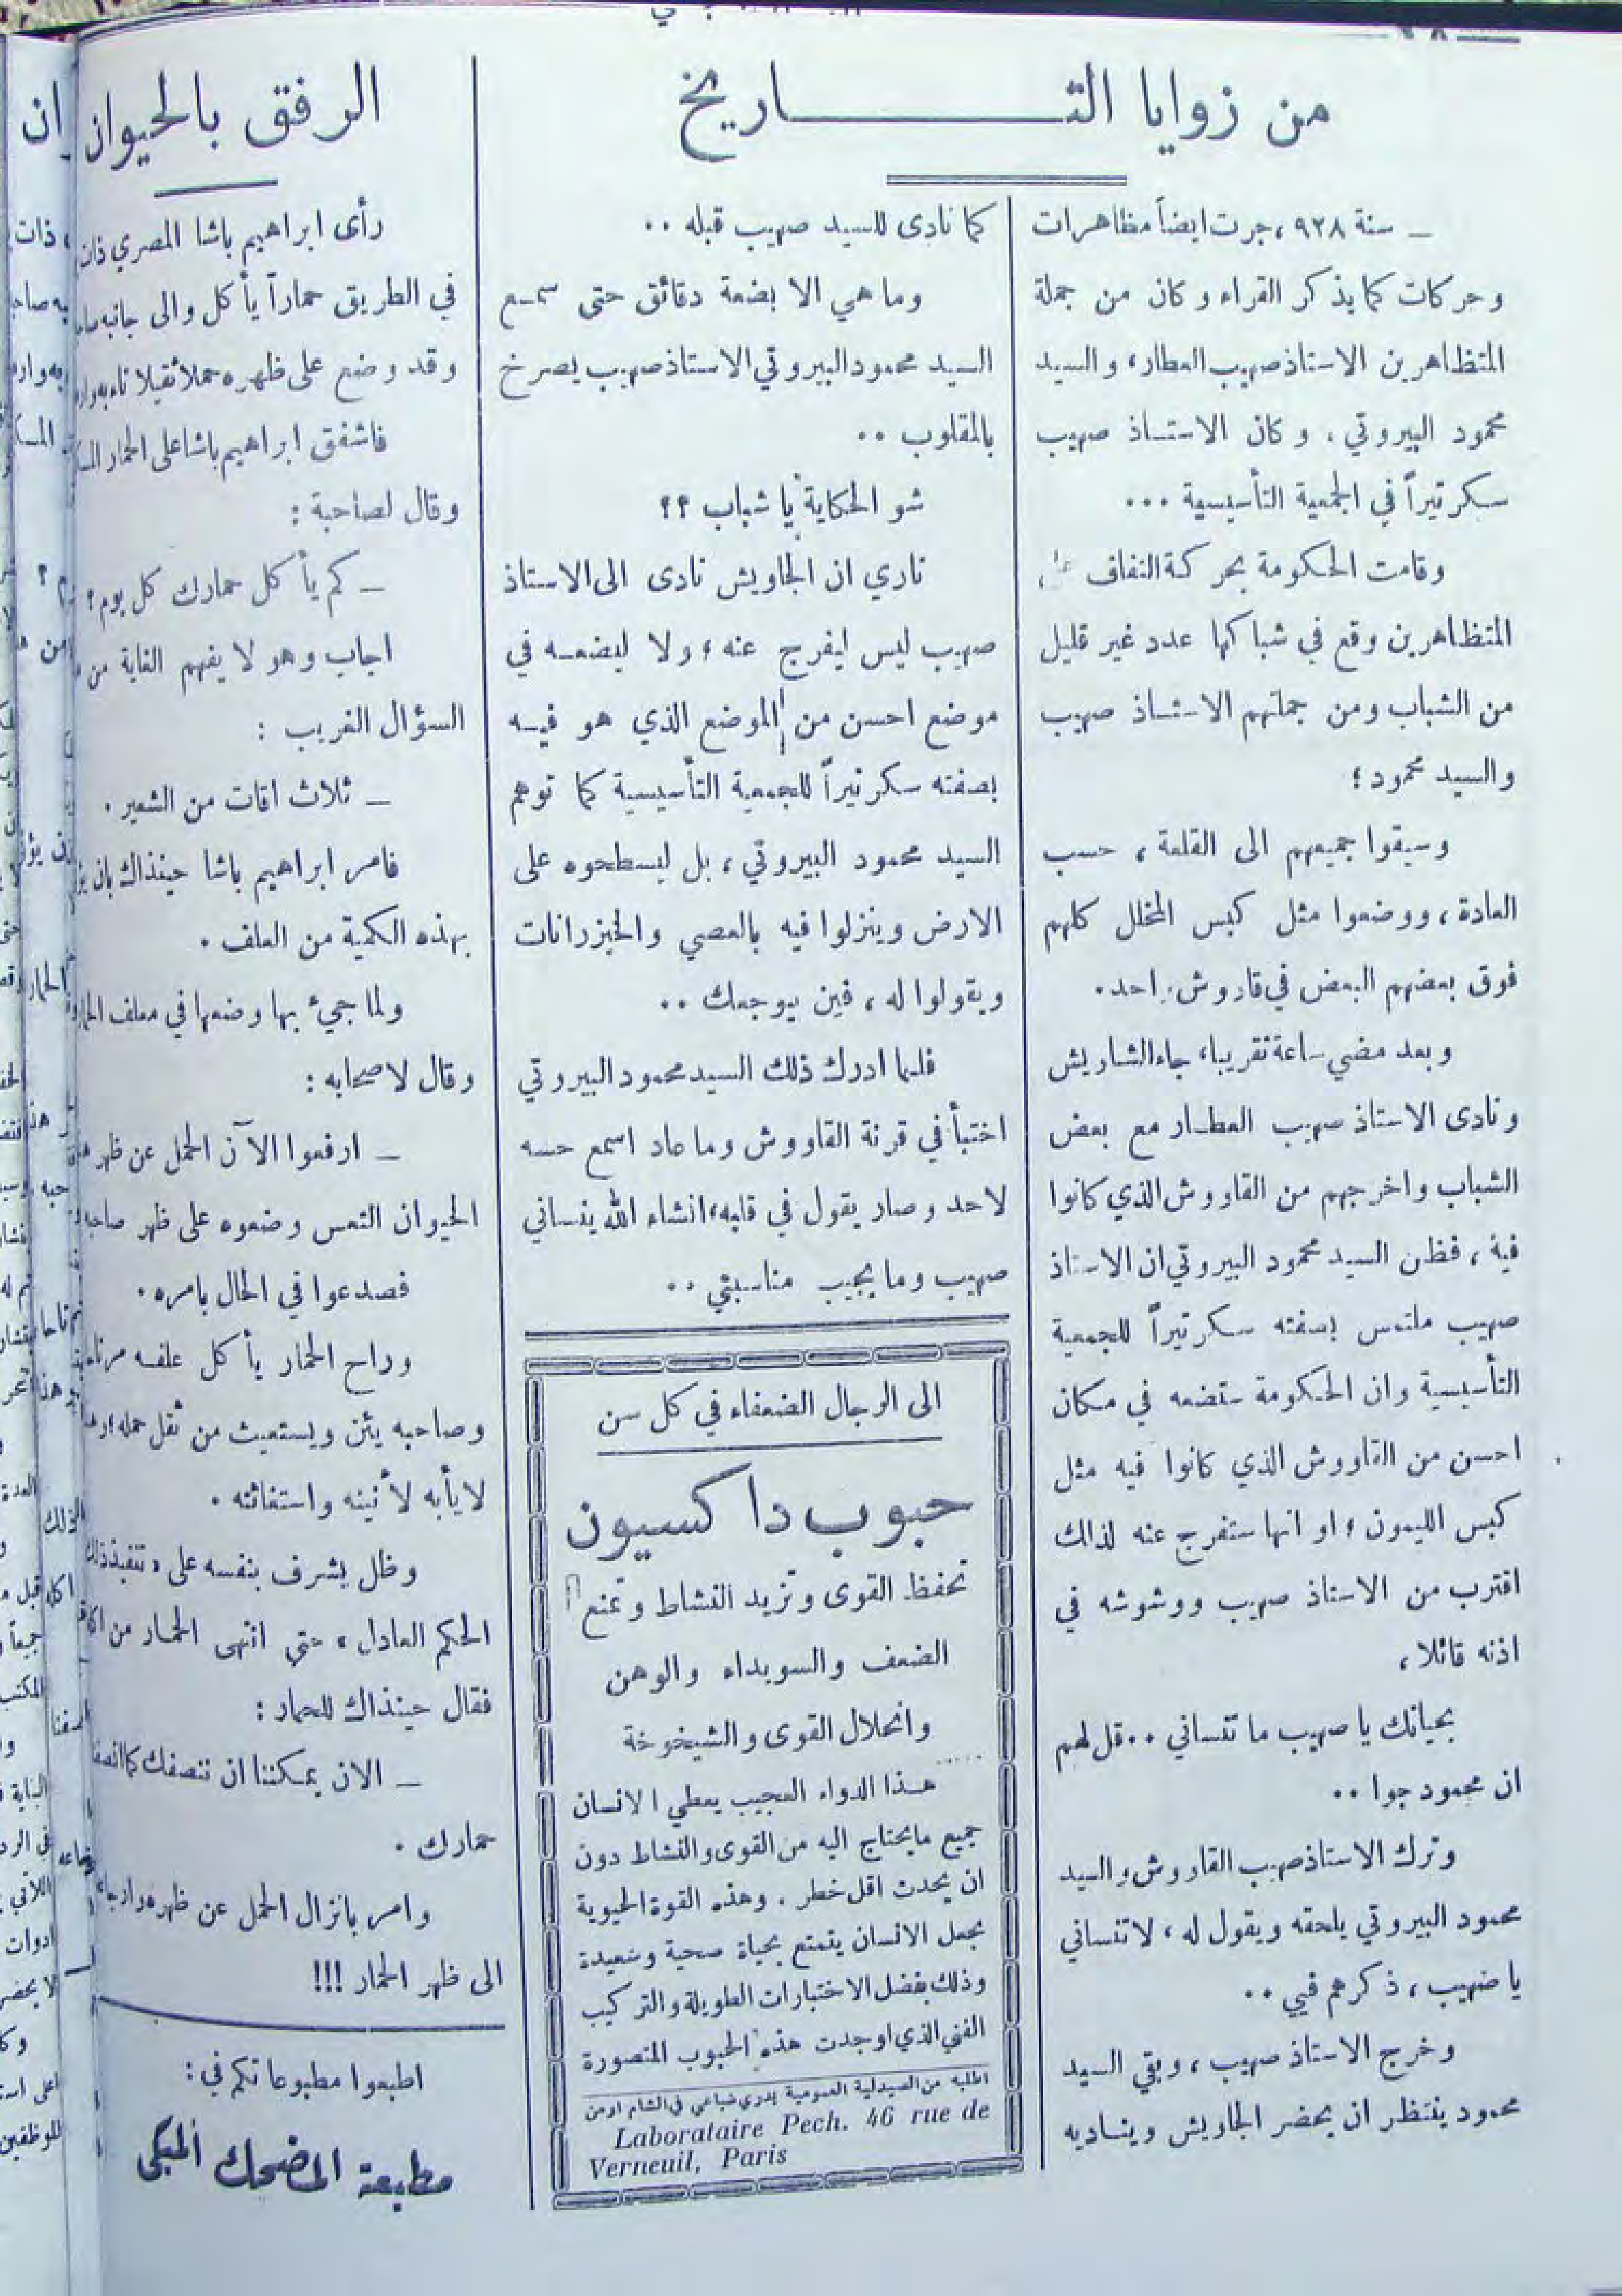 من زوايا التـــاريخ
ـ سنة ٩٢٨ ، جرت ايضاً مظاهرات
وحركات كما يذكر القراء وكان من جملة
المتظاهرين الاستاذ صهيب العطار ، والسيد
محمود البيروتي . وكان الاستاذ صهيب
سكرتيراً في الجمعية التأسيسية ...
وقامت الحكومة بحركة التفاف
المتظاهرين وقع في شباكها عدد غير قليل
من الشباب ومن جملتهم الاستاذ صهيب
والسيد محمود ؛
وسيقوا جميعهم الى القلعة ، حسب
العادة ، ووضعوا مثل كبس المخلل كلهم
فوق بعضهم البعض في قاووش واحد .
وبعد مضي ساعة تقريبا ، جاء الشاويش
ونادى الاستاذ صهيب العطار مع بعض
الشباب واخرجهم من القاووش الذي كانوا
فية ، فظن السيد محمود البيروتي ان الاستاذ
صهيب ملتمس بصفته سكرتيراً للجمعية
التأسيسية وان الحكومة ستضعه في مكان
احسن من القاووش الذي كانوا فيه مثل
كبس الليمون ؛ او انها ستفرج عنه لذلك
اقترب من الاستاذ صهيب ووشوشه في
اذنه قائلا ،
بحياتك يا صهيب ما تنساني .. قل لهم
ان محمود جوا ..
وترك الاستاذ صهيب القاووش والسيد
محمود البيروتي يلحقه ويقول له ، لا تنساني
يا صهيب ، ذكرهم فيي ..
وخرج الاستاذ صهيب ، وبقي السيد
محمود ينتظر ان يحضر الجاويش ويناديه
كما نادى للسيد صهيب قبله ..
وما هي الا بضعة دقائق حتى سمع
السيد محمود البيروتي الاستاذ صهيب يصرخ
بالمقلوب ..
شو الحكاية يا شباب ؟؟
تاري ان الجاويش نادى الى الاستاذ
صهيب ليس ليفرج عنه ؛ ولا ليضعه في
موضع احسن من الموضع الذي هو فيه
بصفته سكرتيراً للجمعية التأسيسية كما توهم
السيد محمود البيروتي ، بل ليسطحوه على
الارض وينزلوا فيه بالعصي والخيزرانات
ويقولوا له ، فين يوجعك ..
فلما ادرك ذلك السيد محمود البيروتي
اختبأ في قرنة القاووش وما عاد اسمع حسه
لاحد وصار يقول في قلبه ، انشاء الله ينساني
صهيب وما يجيب مناسبتي ..
الى الرجال الضعفاء في كل سن
حبوب داكسيون
تحفظ القوى وتزيد النشاط وتمنع
الضعف والسويداء والوهن
وانحلال القوى والشيخوخة
هذا الدواء العجيب يعطي الانسان
جميع ما يحتاج اليه من القوى والنشاط دون
ان يحدث اقل خطر . وهذه القوة الحيوية
تجعل الانسان يتمتع بحياة صحية وسعيدة
وذلك بفضل الاختبارات الطويلة والتركيب
الفني الذي اوجدت هذه الحبوب المنصورة
اطلبه من الصيدلية العمومية بدري ضباعي في الشام او من
Laborataire Pech. 46 rue de
Verneuil, Paris
الرفق بالحيوان
رأى ابراهيم باشا المصري ذات
في الطريق حماراً يأكل والى جانبه
وقد وضع على ظهره حملا ثقيلا ناء به
فاشفق ابراهيم باشا على الحمار
وقال لصاحبة :
ـ كم يأكل حمارك كل يوم ؟
اجاب وهو لا يفهم الغاية من
السؤال الغريب :
ـ ثلاث اقات من الشعير .
فامر ابراهيم باشا حينذاك بان
بهذه الكمية من العلف .
ولما جيء بها وضعها في معلف
وقال لاصحابه :
ـ ارفعوا الآن الحمل عن ظهر
الحيوان التعس وضعوه على ظهر صاحبه
فصدعوا في الحال بامره .
وراح الحمار يأكل علفه
وصاحبه يئن ويستغيث من ثقل حمله ؛
لا يأبه لأنينه واستغاثته .
وظل يشرف بنفسه على « تنفيذ
الحكم العادل ، حتى انتهى الحمار من
فقال حينذاك للحمار :
ـ الان يمكننا ان ننصفك كما
حمارك .
وامر بانزال الحمل عن ظهره
الى ظهر الحمار !!!
اطبعوا مطبوعاتكم في :
مطبعة المضحك المبكي